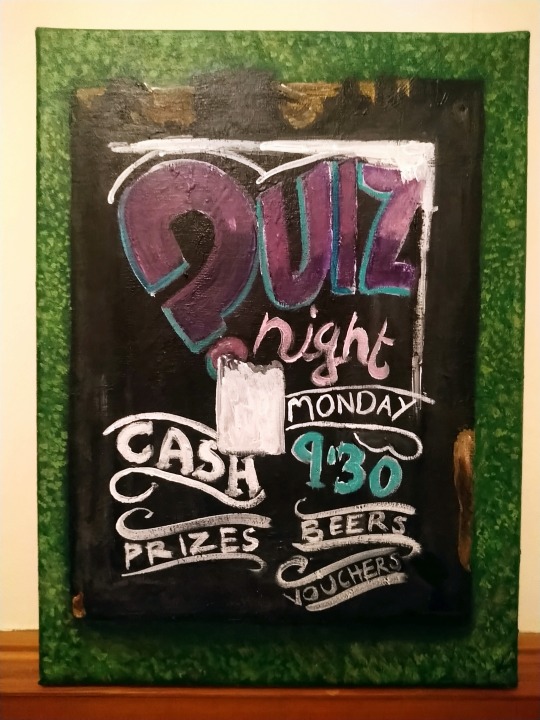 QUIZ
night
MONDAY
9:30
CASH
PRIZES
BEERS
VOUCHERS